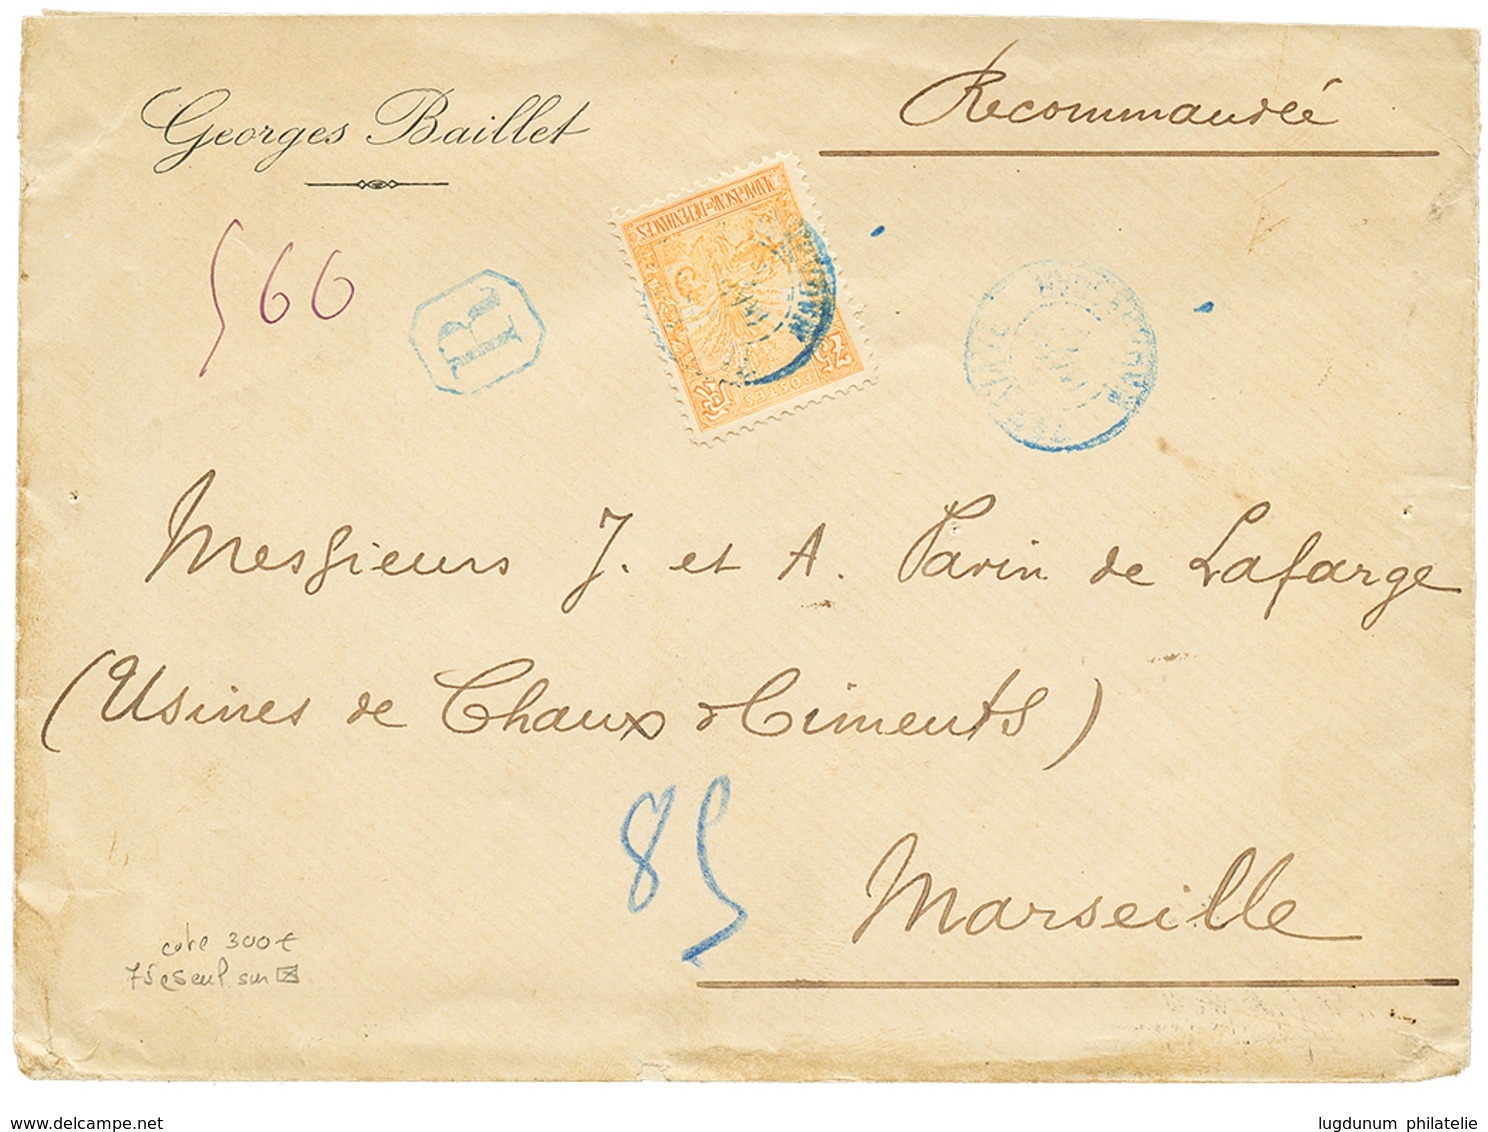 Georges Baillet
Recommandée
566
R
MADAGASCAR ET DÉPENDANCES
75
75
POSTES
Messieurs J. et A. Pavin de Lafarge
(Usines de Chaux & Ciments)
85
Marseille
cote 300€
75c seul sur
www.delcampe.net
lugdunum philatelie